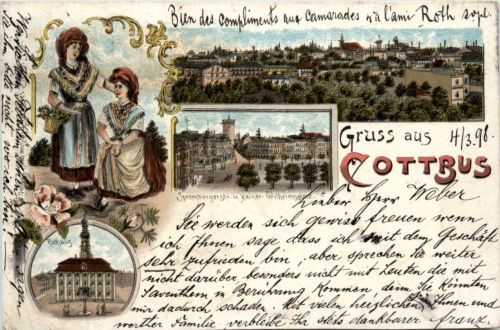 Bien des compliments aux camarades & à l'ami Roth
Gruss aus
4/3.98
COTTBUS
Sprembergerstr. u. Kaiser-Wilhelmsplatz
Rathaus
Lieber Herr Weber
Sie werden sich gewiss freuen wenn
ich Ihnen sage dass ich mit dem Geschäft
sehr zufrieden bin; aber sprechen Sie weiter
nicht darüber besonders nicht mit Leuten die mit
Saventhem in Berührung kommen, denn Sie könnten
mir dadurch schaden. Mit vielen herzlichen Grüssen und
werther Familie verbleibe Ihr stets dankbarer Franz.